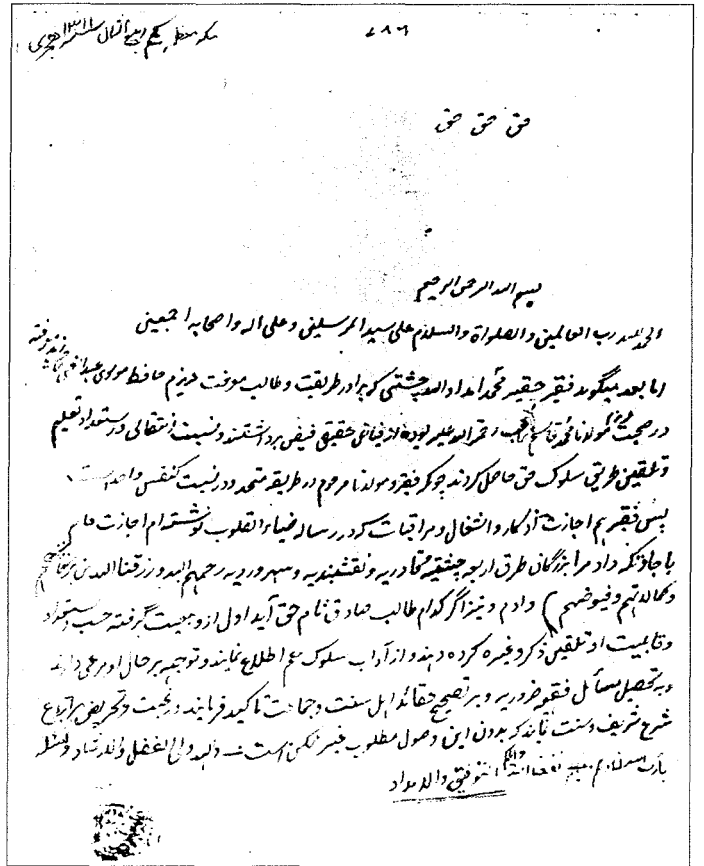 مکه معظمه یکم ربیع الثانی ۱۳۱۱ هجری
۷۸۶
حق حق حق
بسم الله الرحمن الرحیم
الحمد لله رب العالمین و الصلواة والسلام علی سید المرسلین و علی اله و اصحابه اجمعین
اما بعد میگوید فقیر حقیر محمد امداد الله چشتی که برادر طریقت و طالب معرفت عزیزم حافظ مولوی
در صحبت مولانا محمد قاسم صاحب رحمة الله علیه بوده از فیاض حقیقی فیض برداشتند و نسبت انتقالی و استعداد تعلیم
و تلقین طریق سلوک حق حاصل کردند چونکه فقیر و مولانا مرحوم در طریقه متحد و در نسبت کنفس واحد است
پس فقیر هم اجازت اذکار و اشغال و مراقبات که در رساله ضیاء القلوب نوشته ام اجازت
با جازتیکه داد مرا بزرگان طرق اربعه چشتیه قادریه و نقشبندیه و سهروردیه رحمهم الله و رزقنا الله من
و کمالاتهم و فیوضهم دادم و نیز اگر کدام طالب صادق نام حق آید اول ازو بیعت گرفته حسب استعداد
و قابلیت او تلقین ذکر و غیره کرده دهند و از آداب سلوک هم اطلاع نمایند و توجه بر حال او مرعی دارند
و به تحصیل مسائل فقهیه ضروریه و بر تصحیح عقائد اهل سنت و جماعت تاکید فرمایند و رغبت و تحریض بر اتباع
شرع شریف و سنت نمایند که بدون این وصول مطلوب غیر ممکن است والله ولی الفضل والارشاد
التوفیق والامداد